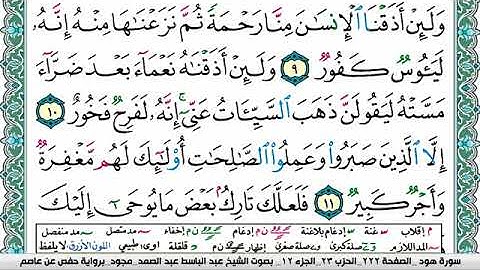 وَلَئِنْ أَذَقْنَا ٱلْإِنسَٰنَ مِنَّا رَحْمَةً ثُمَّ نَزَعْنَٰهَا مِنْهُ إِنَّهُۥ
لَيَـُٔوسٌ كَفُورٌ ٩ وَلَئِنْ أَذَقْنَٰهُ نَعْمَآءَ بَعْدَ ضَرَّآءَ
مَسَّتْهُ لَيَقُولَنَّ ذَهَبَ ٱلسَّيِّـَٔاتُ عَنِّىٓ إِنَّهُۥ لَفَرِحٌ فَخُورٌ ١٠
إِلَّا ٱلَّذِينَ صَبَرُوا۟ وَعَمِلُوا۟ ٱلصَّٰلِحَٰتِ أُو۟لَٰٓئِكَ لَهُم مَّغْفِرَةٌ
وَأَجْرٌ كَبِيرٌ ١١ فَلَعَلَّكَ تَارِكٌۢ بَعْضَ مَا يُوحَىٰٓ إِلَيْكَ
م إقلاب س غنة إدغام بلاغنة إدغام ن م إخفاء مد متصل مد منفصل
مد اللازم صلة كبرى صلة صغرى إظهار ن م قلقلة اوى طبيعي اللون الأزرق لا يلفظ
سورة هود _ الصفحة ٢٢٢_ الحزب ٢٣_ الجزء ١٢ _ بصوت الشيخ عبد الباسط عبد الصمد_ مجود_ برواية حفص عن عاصم